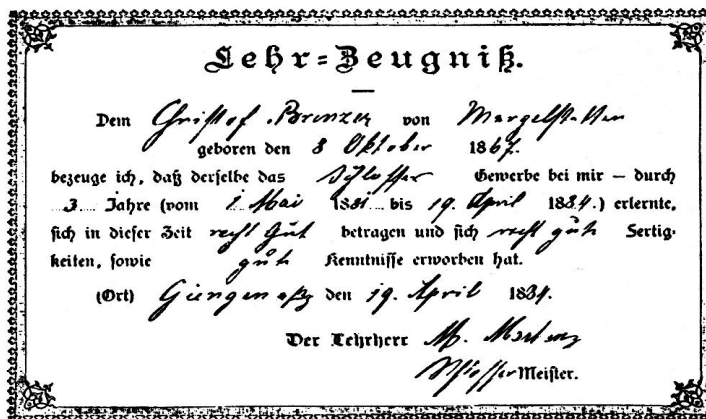 Lehr-Zeugniß.
Dem Christof Brenzer von Mergelstetten
geboren den 8 Oktober 1867.
bezeuge ich, daß derselbe das Schlosser Gewerbe bei mir — durch
3 Jahre (vom 1. Mai 1881 bis 19. April 1884.) erlernte,
sich in dieser Zeit recht gut betragen und sich recht gute Fertig-
keiten, sowie gute Kenntnisse erworben hat.
(Ort) Giengen a/Brz den 19. April 1884.
Der Lehrherr M.
Schlosser Meister.